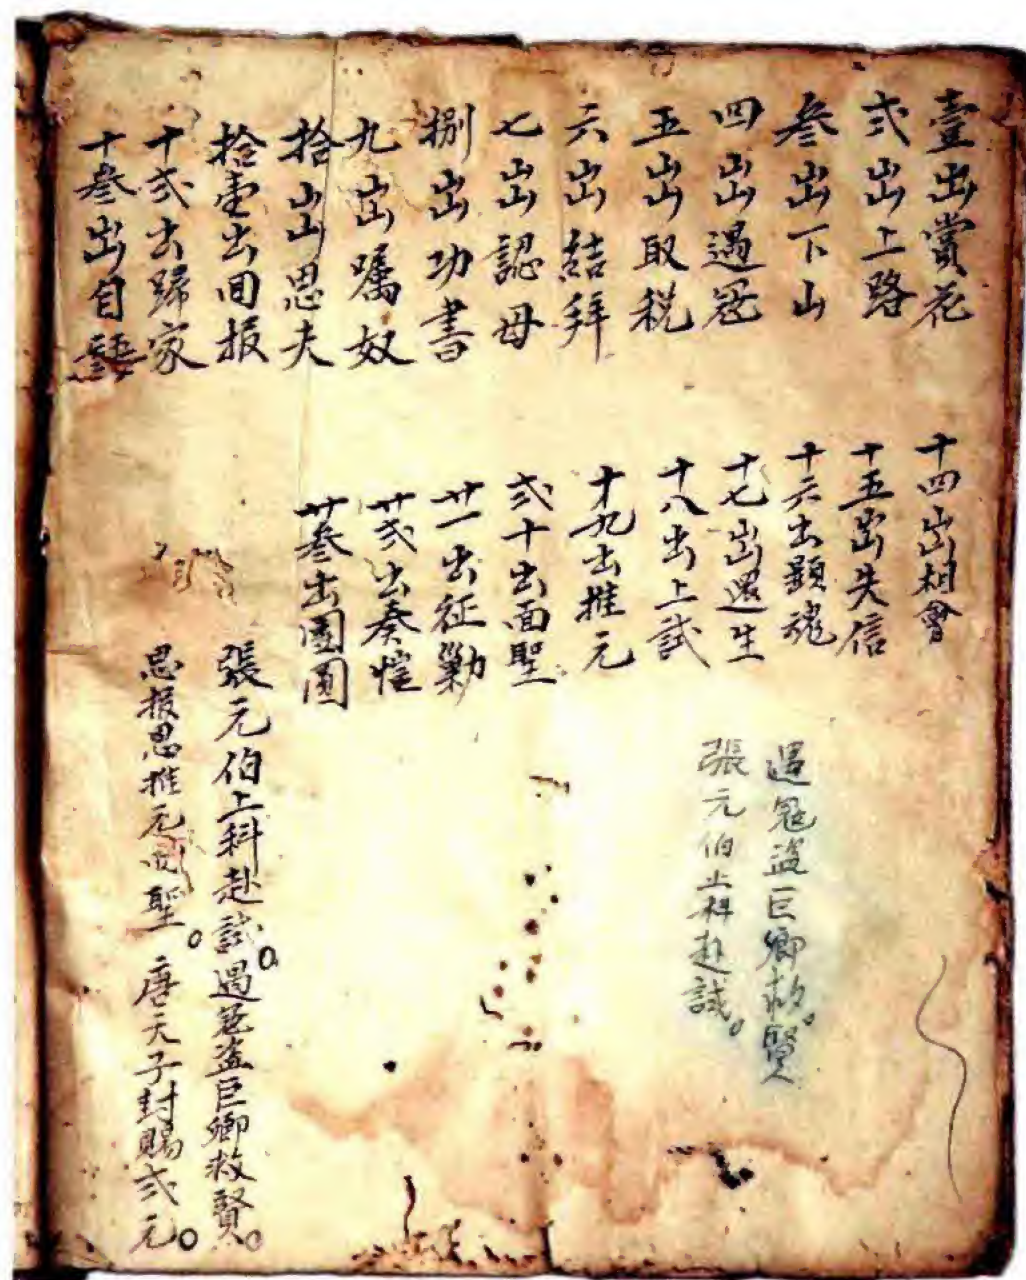 壹出賞花
弍出上路
叁出下山
四出遇冦
五出取税
六出結拜
七出認母
捌出功書
九出嘱奴
拾出思夫
拾壹出回报
十弍出歸家
十叁出自
十四出相會
十五出失信
十六出顕魂
十七出還生
十八出上試
十九出推元
弍十出面聖
廿一出征剿
廿弍出奏愷
廿叁出團圓
遇冦盗巨卿救賢
張元伯上科赴試。
張元伯上科赴試。遇冦盗巨卿救賢。
恩报恩推元面聖。唐天子封賜弍元。